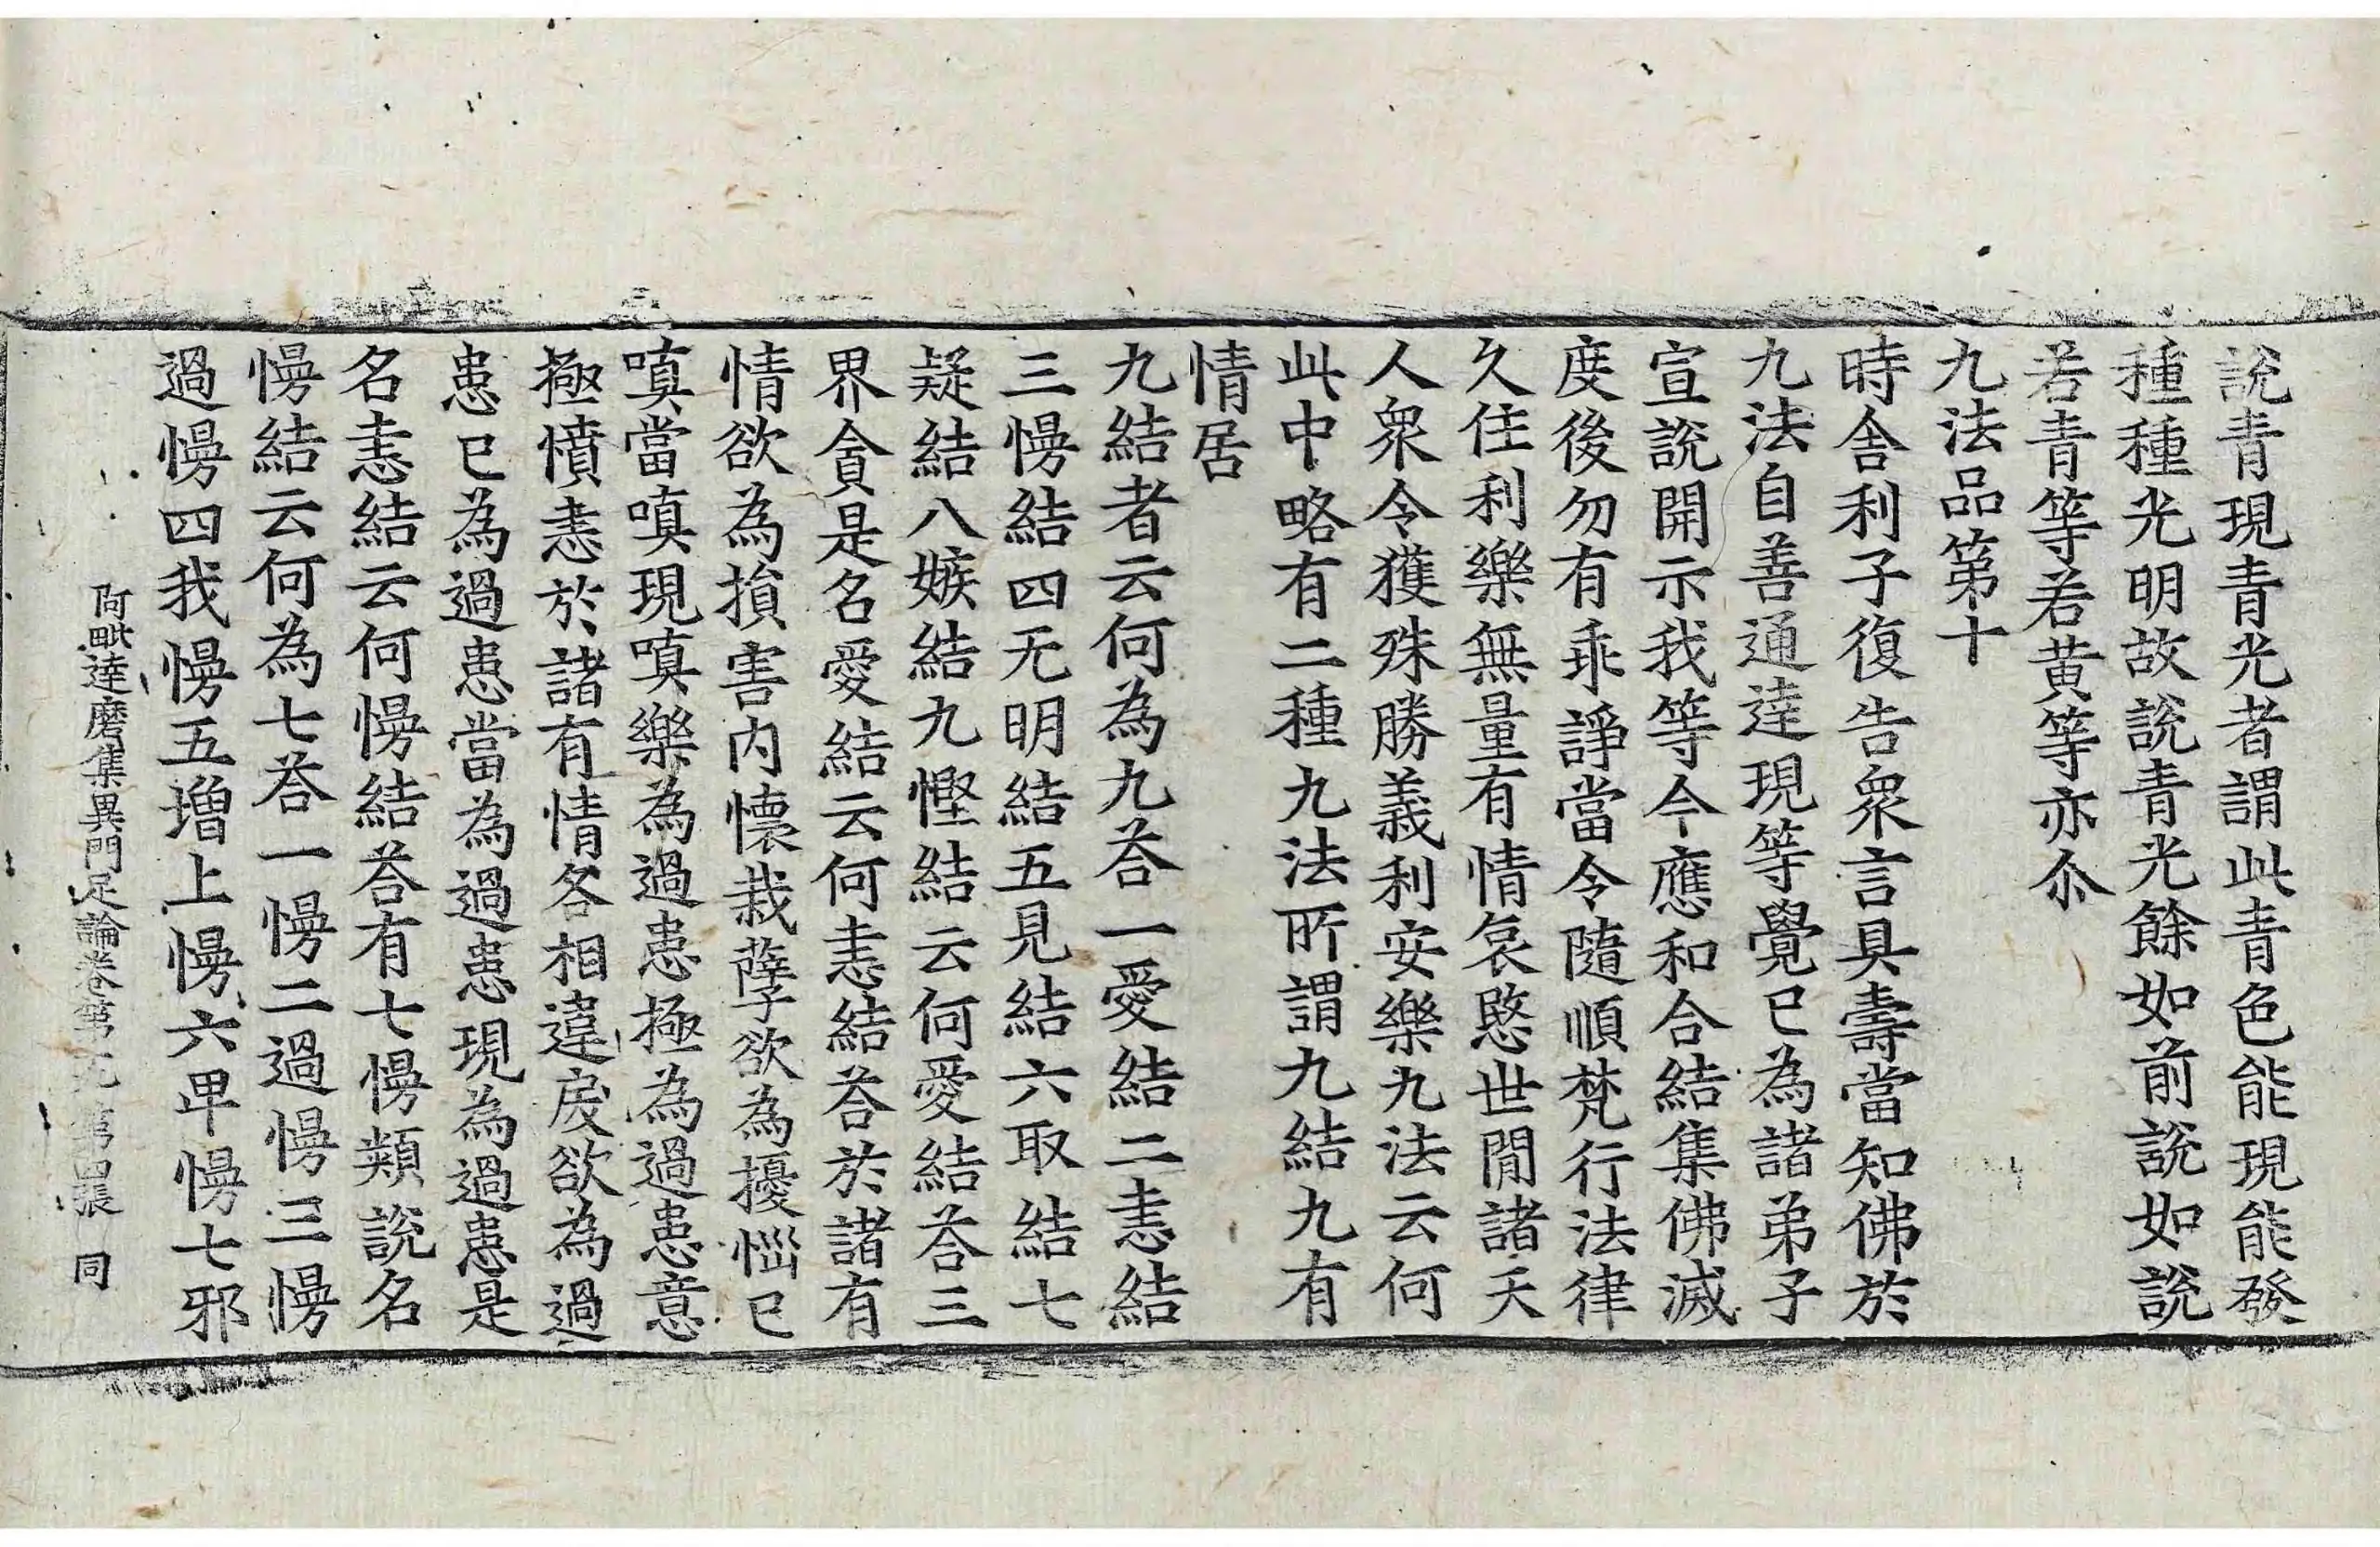 說青現青光者謂此青色能現能發
種種光明故說青光餘如前說如說
若青等若黃等亦尒
九法品第十
時舍利子復告衆言具壽當知佛於
九法自善通達現等覺已為諸弟子
宣說開示我等今應和合結集佛滅
度後勿有乖諍當令隨順梵行法律
久住利樂無量有情哀愍世閒諸天
人衆令獲殊勝義利安樂九法云何
此中略有二種九法所謂九結九有
情居
九結者云何為九荅一愛結二恚結
三慢結四无明結五見結六取結七
疑結八嫉結九慳結云何愛結荅三
界貪是名愛結云何恚結荅於諸有
情欲為損害内懷栽孽欲為擾惱已
嗔當嗔現嗔樂為過患極為過患意
極憤恚於諸有情各相違戾欲為過
患已為過患當為過患現為過患是
名恚結云何慢結荅有七慢類說名
慢結云何為七荅一慢二過慢三慢
過慢四我慢五增上慢六卑慢七邪
阿毗達磨集異門足論卷第九第四張 同